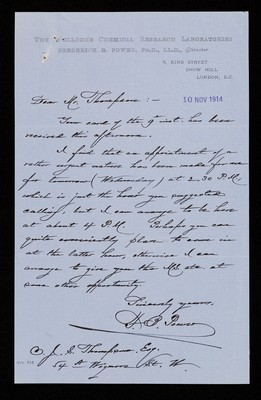 THE WELLCOME CHEMICAL RESEARCH LABORATORIES
FREDERICK B. POWER, PH.D., LL.D., Director
6, KING STREET
SNOW HILL
LONDON, E.C.
10 NOV 1914
Dear Mr. Thompson :—
Your card of the 9th inst. has been
received this afternoon.
I find that an appointment of a
rather urgent nature has been made for me
for tomorrow (Wednesday) at 2-30 P.M.
which is just the hour you suggested
calling, but I can arrange to be here
at about 4 P.M. Perhaps you can
quite conveniently plan to come in
at the latter hour, otherwise I can
arrange to give you the MS. etc. at
some other opportunity.
Sincerely yours,
F. B. Power
C. J. S. Thompson, Esq.
54 A Wigmore St. W.